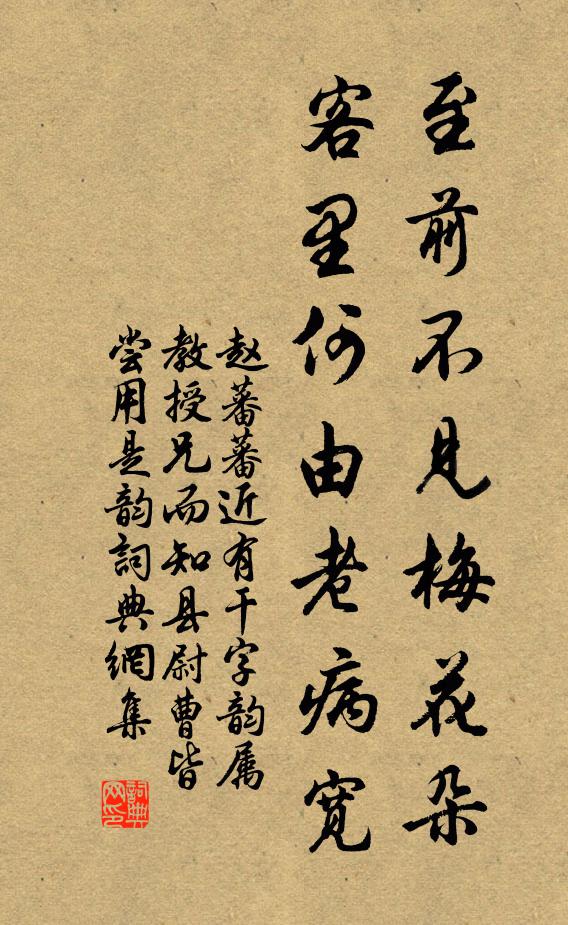 至前不见梅花朵
客里何由老病宽
赵蕃蕃近有干字韵属
教授兄而知县尉曹皆
尝用是韵詞典網集
詞典
网印